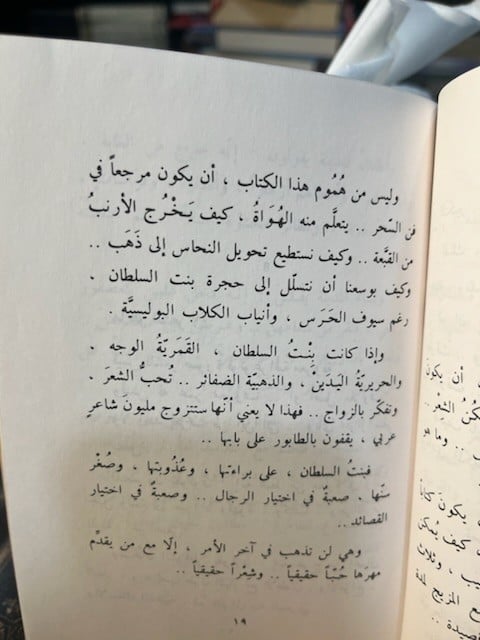 وليس من هُمُوم هذا الكتاب ، أن يكون مرجعاً في
فن السّحر .. يتعلّم منه الهُوَاةُ ، كيف يَخْرُج الأرنبُ
من القبَّعة .. وكيف نستطيع تحويل النحاس إلى ذَهَب ..
وكيف بوسعنا أن نتسلّل إلى حجرة بنت السلطان .
رغم سيوف الحَرَس ، وأنياب الكلاب البوليسيَّة .
وإذا كانت بِنْتُ السلطان ، القَمَريّةُ الوجه .
والحريريّةُ اليَدَينْ ، والذهبيّة الضفائر .. تُحبُّ الشعرَ .
وتفكّر بالزواج .. فهذا لا يعني أنّها ستتزوج مليونَ شاعرٍ
عربي ، يقفون بالطابور على بابها ..
فبنتُ السلطان ، على براءتها ، وعُذُوبتها ، وصُغْر
سنّها ، صعبةٌ في اختيار الرجال .. وصعبةٌ في اختيار
القصائد ..
وهي لن تذهب في آخر الأمر ، إلّا مع من يقدّم
مهرَها حُبّاً حقيقياً .. وشِعْراً حقيقياً ..
١٩
أن يكون
الشعْر ..
وما هو
يكون كتاباً
كيف يُمكن
وثلاث
مع المزيج لمدة